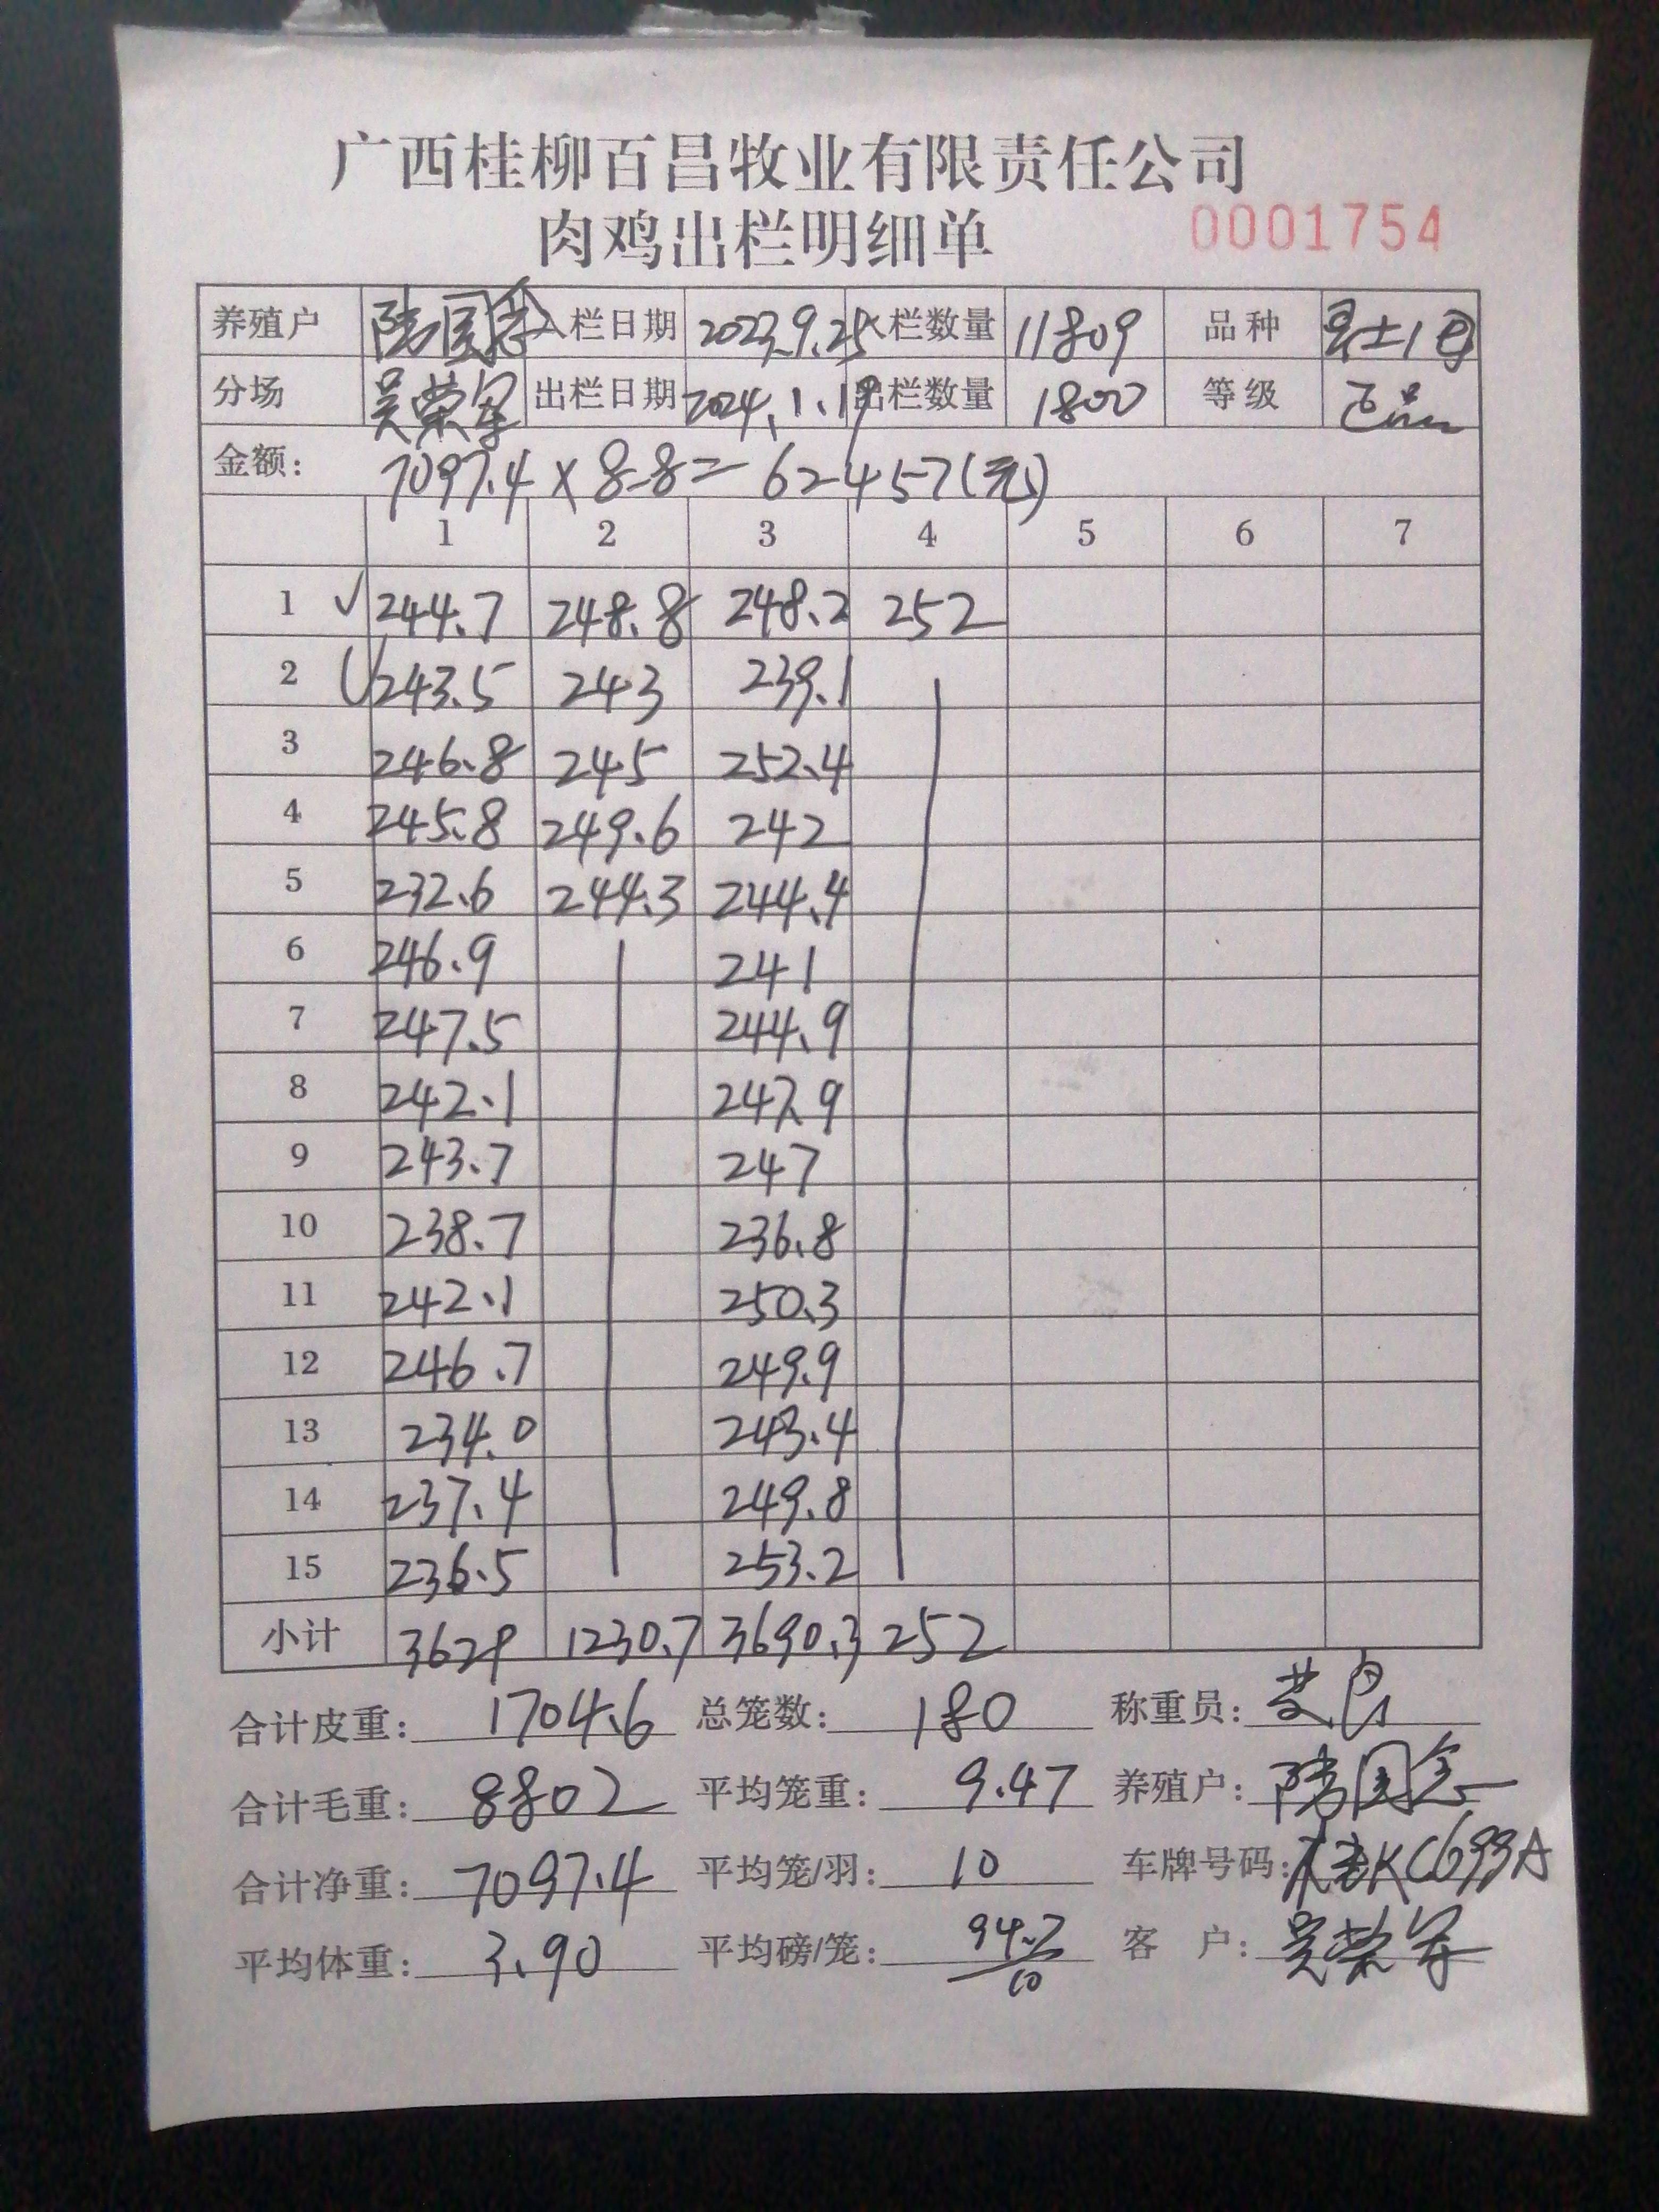 广西桂柳百昌牧业有限责任公司
肉鸡出栏明细单 0001754
养殖户 入栏日期 2023.9.25 入栏数量 11809 品种
分场 吴荣军 出栏日期 2024.1.19 出栏数量 1800 等级 正品
金额: 7097.4 x 8.8= 62457(元)
1 2 3 4 5 6 7
1 244.7 248.8 248.2 252
2 243.5 243 239.1
3 246.8 245 252.4
4 245.8 249.6 242
5 232.6 244.3 244.4
6 246.9 241
7 247.5 244.9
8 242.1 247.9
9 243.7 247
10 238.7 236.8
11 242.1 250.3
12 246.7 249.9
13 234.0 243.4
14 237.4 249.8
15 236.5 253.2
小计 3629 1230.7 3690.3 252
合计皮重: 1704.6 总笼数: 180 称重员:
合计毛重: 8802 平均笼重: 9.47 养殖户:
合计净重: 7097.4 平均笼/羽: 10 车牌号码:
平均体重: 3.90 平均磅/笼: 94.7/10 客 户: 吴荣军